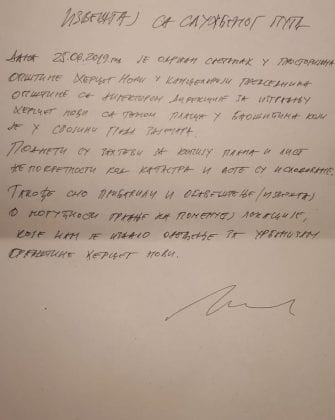 ИЗВЕШТАЈ СА СЛУЖБЕНОГ ПУТА
ДАНА 25.06.2019.год ЈЕ ОДРЖАН САСТАНАК У ПРОСТОРИЈАМА
ОПШТИНЕ ХЕРЦЕГ НОВИ У КАНЦЕЛАРИЈИ ПРЕДСЕДНИКА
ОПШТИНЕ СА ДИРЕКТОРОМ ДИРЕКЦИЈЕ ЗА ИЗГРАДЊУ
ХЕРЦЕГ НОВИ СА ТЕМОМ ПЛАЦА У БАОШИЋИМА КОЈИ
ЈЕ У СВОЈИНИ ГРАДА
ПОДНЕТИ СУ ЗАХТЕВИ ЗА КОПИЈУ ПЛАНА И ЛИСТ
НЕПОКРЕТНОСТИ КОД КАТАСТРА И ИСТЕ СУ ИСХОДОВАНЕ.
ТАКОЂЕ СМО ПРИБАВИЛИ И ОБАВЕШТЕЊЕ/
О МОГУЋНОСТИ ГРАДЊЕ НА ПОМЕНУТОЈ ЛОКАЦИЈИ,
КОЈЕ НАМ ЈЕ ИЗДАЛО ОДЕЉЕЊЕ ЗА УРБАНИЗАМ
ОПШТИНЕ ХЕРЦЕГ НОВИ.